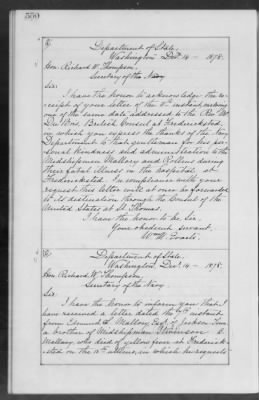 550
Department of State,
Washington Decr. 14 - 1878.
Hon. Richard W. Thompson,
Secretary of the Navy
Sir:
I have the honor to acknowledge the re-
ceipt of your letter of the instant, enclosing
one of the same date, addressed to the Rev. Mr.
Du Bois, British Consul at Fredericksted,
in which you express the thanks of the Navy
Department to that gentleman for his per-
sonal kindness and administration to the
Midshipmen Mallory and Rollins during
their fatal illness in the hospital, at
Fredericksted. In compliance with your
request this letter will at once be forwarded
to its destination through the Consul of the
United States at St. Thomas.
I have the honor to be Sir,
Your obedient servant,
Wm. M. Evarts.
Department of State,
Washington, Decr. 14 - 1878.
Hon. Richard W. Thompson,
Secretary of the Navy.
Sir:
I have the honor to inform you that I
have received a letter dated the 7th instant
from Edmund S. Mallory, Esq. of Jackson Tenn.
a brother of Midshipman Stevenson
Mallory, who died of yellow fever at Frederick-
sted on the 15th ultimo, in which he requests